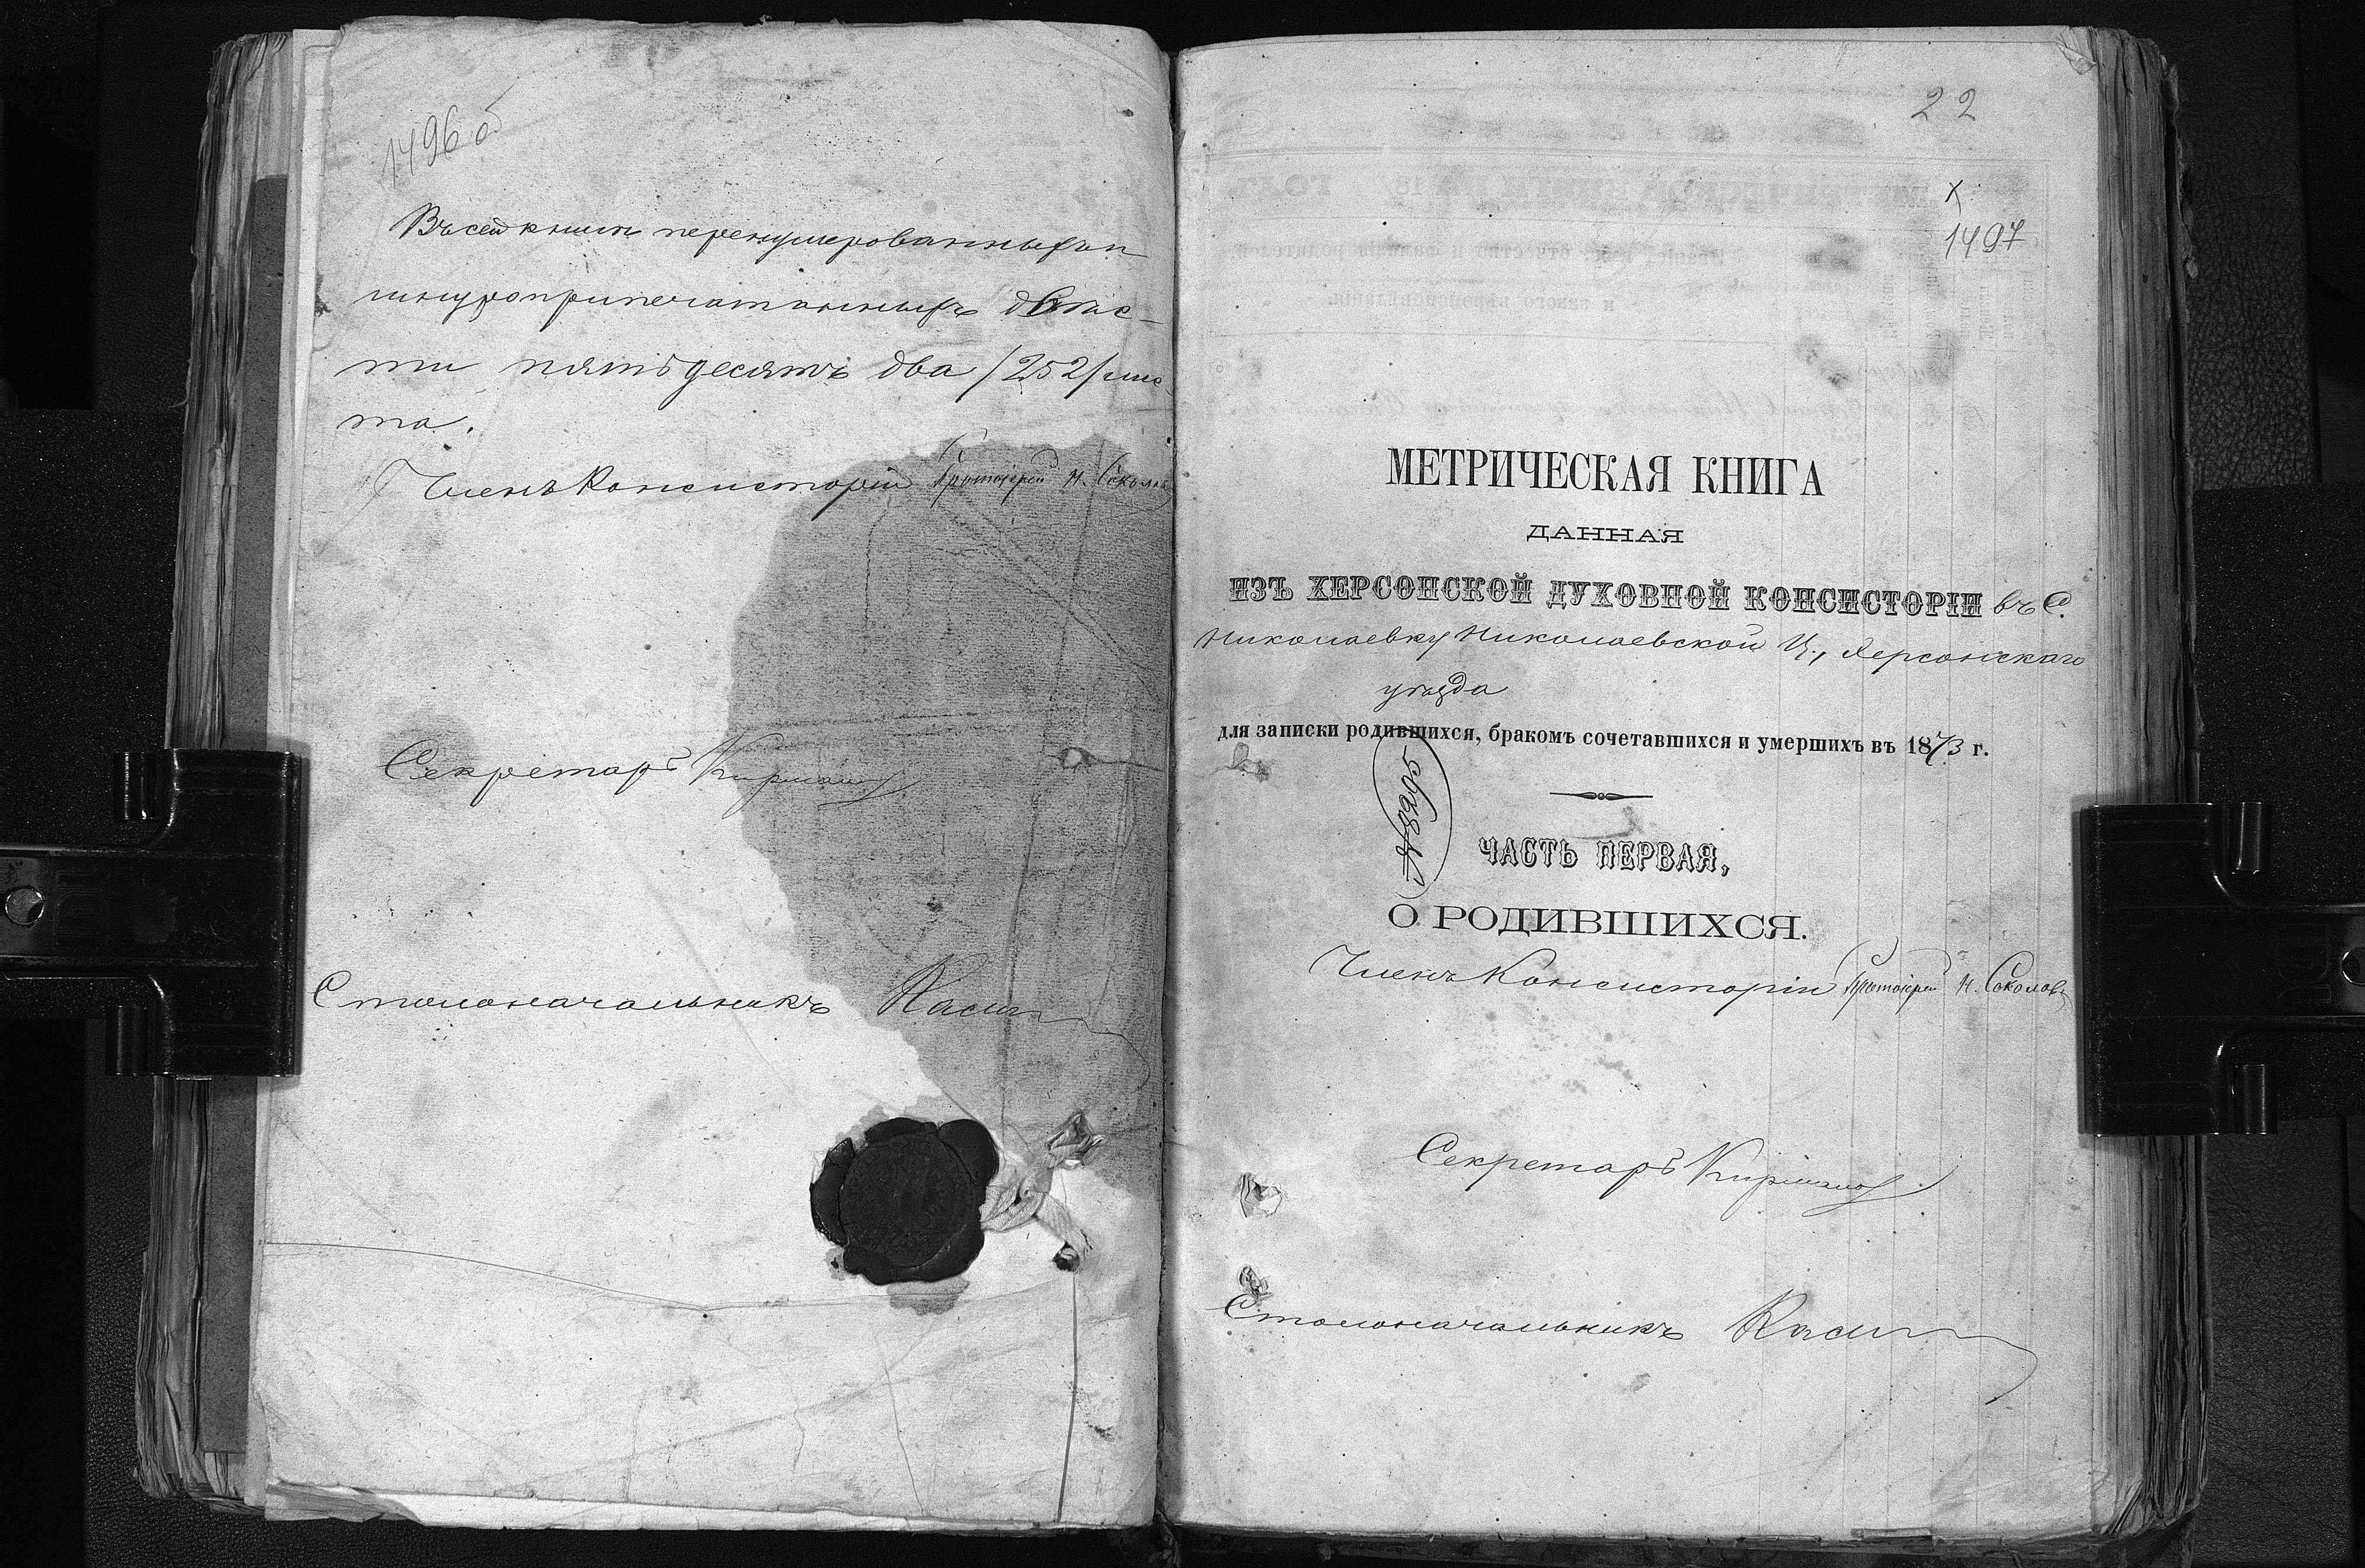 1496 об
Въ сей книгѣ перенумерованныхъ и
шнуроприпечатанныхъ двѣс-
ти пятьдесятъ два /252/ лис-
та.
Членъ Консисторіи Протоіерей Н. Соколовъ
Секретарь
Столоначальникъ
22
1497
МЕТРИЧЕСКАЯ КНИГА
ДАННАЯ
ИЗЪ ХЕРСОНСКОЙ ДУХОВНОЙ КОНСИСТОРІИ въ с.
Николаевку Николаевской ц., Херсонскаго
уѣзда
для записки родившихся, бракомъ сочетавшихся и умершихъ въ 1873 г.
ЧАСТЬ ПЕРВАЯ,
О РОДИВШИХСЯ.
Членъ Консисторіи Протоіерей Н. Соколовъ
Секретарь
Столоначальникъ